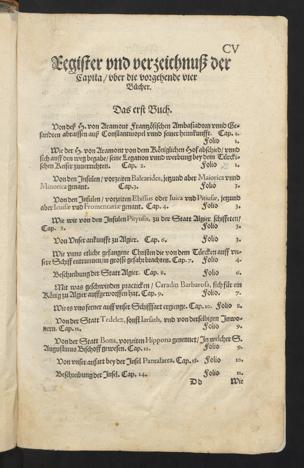 CV
Register vnd verzeichnuß der
Capita / vber die vorgehende vier
Bücher.
Das erst Buch.
Von deß H. von Aramont Frantzösischen Ambasiadorn vnnd Ge-
sandten abraisen auff Constantinopel vnnd seiner heimkunfft. Cap. 1.
Folio 1.
Wie der H. von Aramont von dem Königlichen Hof abschied / vnnd
sich auff den weg begabe / seine Legation vnnd werbung bey dem Türcki-
schen Keiser zuuerrichten. Cap. 2. Folio 1.
Von den Insulen / vorzeiten Balearides, jetzund aber Maiorica vnnd
Minorica genant. Cap. 3. Folio 3.
Von den Insulen / vorzeiten Ebissus oder Iuica vnd Pitiusæ, jetzund
aber Ieuisæ vnd Fromentaria genant. Cap. 4. Folio 3.
Wie wir von den Insulen Pityusis, zu der Statt Algier schifften /
Cap. 5. Folio 3.
Von Vnser ankunfft zu Algier. Cap. 6. Folio 3.
Wie vnns etliche gefangne Christen die von dem Türcken auff vn-
sere Schiff entrunnen / in grosse gefahr brachten. Cap. 7. Folio 4.
Beschreibung der Statt Algier. Cap. 8. Folio 6.
Mit was geschwinden practicken / Cairadin Barbarossa, sich für ein
König zu Algier auffgeworffen hat. Cap. 9. Folio 7.
Wie es vns ferner auff vnser Schifffart ergienge. Cap. 10. Folio 8.
Von der Statt Tedelez, vnd von derselbigen Inwo-
nern. Cap. 11. Folio 9.
Von der Statt Bona, vorzeiten Hippona genennet / In welcher S.
Augustinus Bischoff gewesen. Cap. 12. Folio 9.
Von vnser anfart bey der Insel Pantalarea. Cap. 13. Folio 10.
Beschreibung der Insel. Cap. 14. Folio 11.
D d Wie